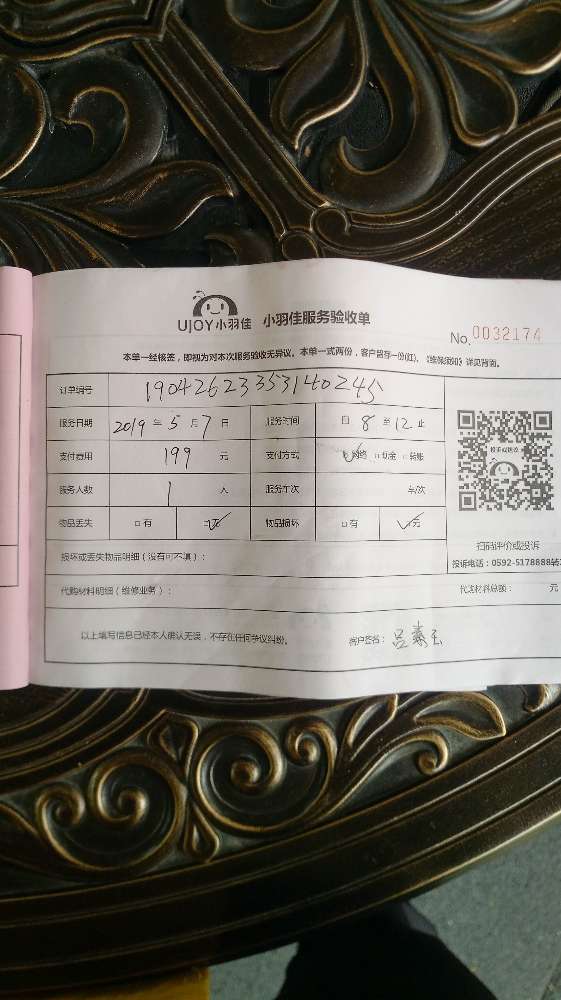 UJOY小羽佳 小羽佳服务验收单
No. 0032174
本单一经核签，即视为对本次服务验收无异议。本单一式两份，客户留存一份(红)，《维保须知》详见背面。
订单编号 19042623353140245
服务日期 2019年5月7日 服务时间 自8至12止
支付费用 199元 支付方式 ☑网络 □现金 □转账
服务人数 1人 服务车次 车/次
物品丢失 □有 ☑无 物品损坏 □有 ☑无
投诉或建议
扫码评价或投诉
投诉电话：0592-5178888转
损坏或丢失物品明细（没有可不填）：
代购材料明细（维修业务）： 代购材料总额： 元
以上填写信息已经本人确认无误，不存在任何争议纠纷。 客户签名：